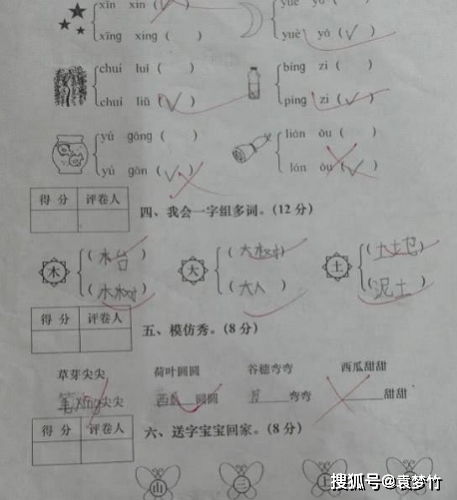 xīn xīn (√)
xīng xing ( )
yuè yǔ ( )
yuè yá (√)
chuí luǐ ( )
chuí liǔ (√)
bíng zi ( )
píng zi (√)
yú gōng ( )
yú gōn (√)
lián òu ( )
lón òu (√)
得分 评卷人
四、我会一字组多词。(12分)
木 (木台) 大 (大木对) 土 (土卫)
(木木对) (大人) (泥土)
得分 评卷人
五、模仿秀。(8分)
草芽尖尖 荷叶圆圆 谷穗弯弯 西瓜甜甜
笔xīng尖尖 西瓜圆圆 弯弯 甜甜
得分 评卷人
六、送字宝宝回家。(8分)
山 三
搜狐号@袁梦竹